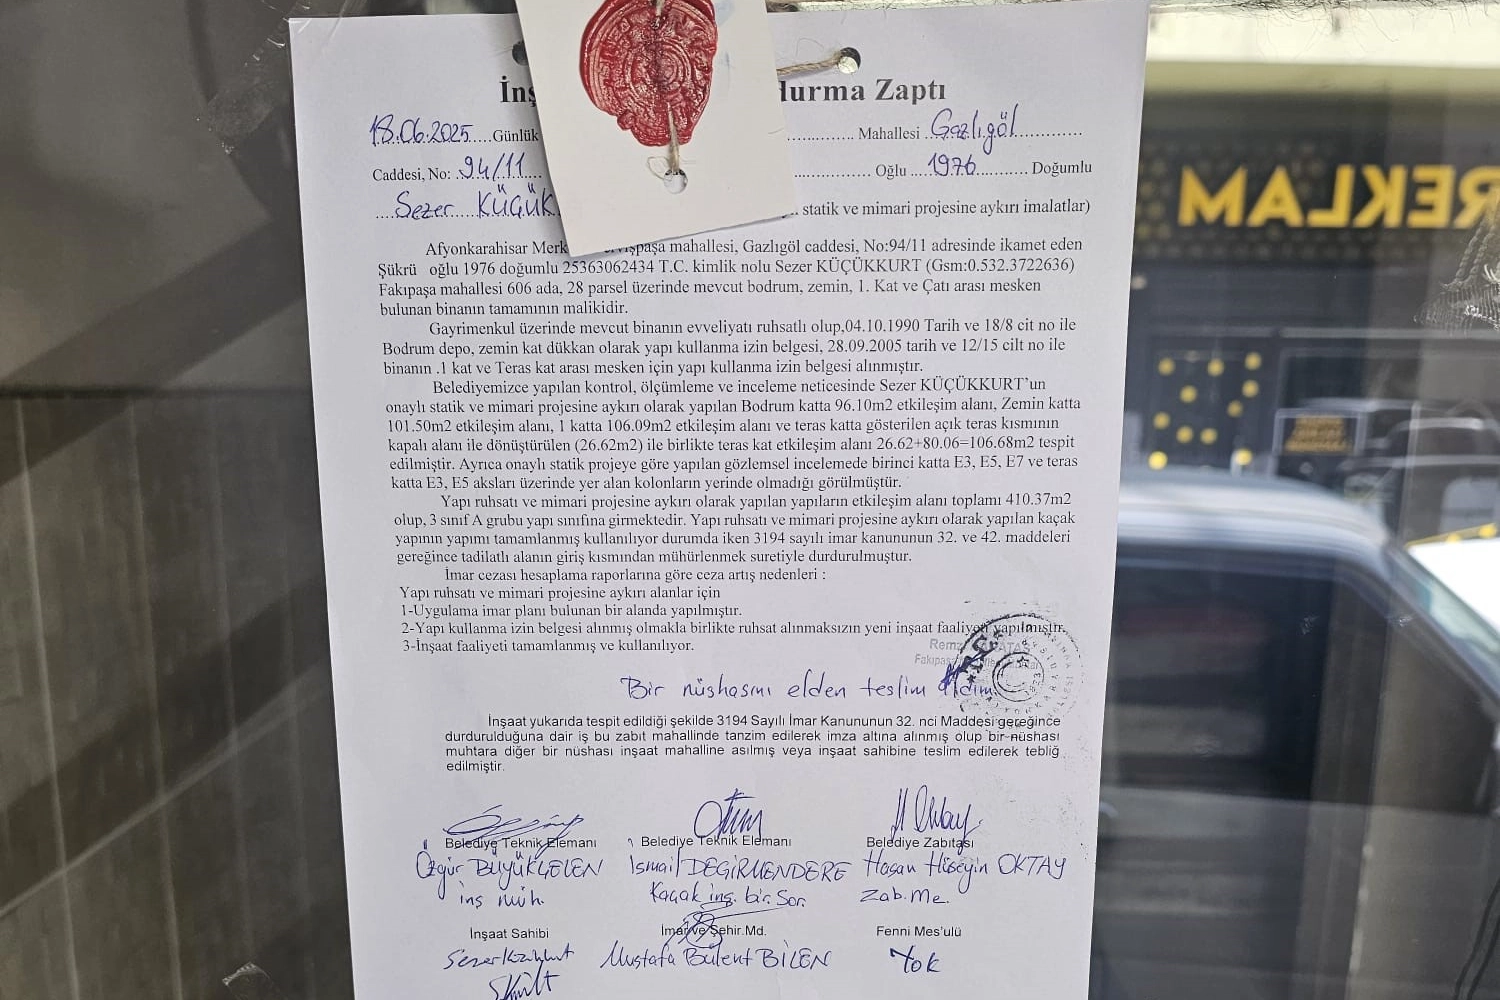 İnş durma Zaptı
18.06.2025 Günlük Mahallesi Gazlıgöl
Caddesi, No: 94/11 Oğlu 1976 Doğumlu
Sezer KÜÇÜK statik ve mimari projesine aykırı imalatlar)
Afyonkarahisar Merk vişpaşa mahallesi, Gazlıgöl caddesi, No:94/11 adresinde ikamet eden
Şükrü oğlu 1976 doğumlu 25363062434 T.C. kimlik nolu Sezer KÜÇÜKKURT (Gsm:0.532.3722636)
Fakıpaşa mahallesi 606 ada, 28 parsel üzerinde mevcut bodrum, zemin, 1. Kat ve Çatı arası mesken
bulunan binanın tamamının malikidir.
Gayrimenkul üzerinde mevcut binanın evveliyatı ruhsatlı olup,04.10.1990 Tarih ve 18/8 cit no ile
Bodrum depo, zemin kat dükkan olarak yapı kullanma izin belgesi, 28.09.2005 tarih ve 12/15 cilt no ile
binanın .1 kat ve Teras kat arası mesken için yapı kullanma izin belgesi alınmıştır.
Belediyemizce yapılan kontrol, ölçümleme ve inceleme neticesinde Sezer KÜÇÜKKURT'un
onaylı statik ve mimari projesine aykırı olarak yapılan Bodrum katta 96.10m2 etkileşim alanı, Zemin katta
101.50m2 etkileşim alanı, 1 katta 106.09m2 etkileşim alanı ve teras katta gösterilen açık teras kısmının
kapalı alanı ile dönüştürülen (26.62m2) ile birlikte teras kat etkileşim alanı 26.62+80.06=106.68m2 tespit
edilmiştir. Ayrıca onaylı statik projeye göre yapılan gözlemsel incelemede birinci katta E3, E5, E7 ve teras
katta E3, E5 aksları üzerinde yer alan kolonların yerinde olmadığı görülmüştür.
Yapı ruhsatı ve mimari projesine aykırı olarak yapılan yapıların etkileşim alanı toplamı 410.37m2
olup, 3 sınıf A grubu yapı sınıfına girmektedir. Yapı ruhsatı ve mimari projesine aykırı olarak yapılan kaçak
yapının yapımı tamamlanmış kullanılıyor durumda iken 3194 sayılı imar kanununun 32. ve 42. maddeleri
gereğince tadilatlı alanın giriş kısmından mühürlenmek suretiyle durdurulmuştur.
İmar cezası hesaplama raporlarına göre ceza artış nedenleri :
Yapı ruhsatı ve mimari projesine aykırı alanlar için
1-Uygulama imar planı bulunan bir alanda yapılmıştır.
2-Yapı kullanma izin belgesi alınmış olmakla birlikte ruhsat alınmaksızın yeni inşaat faaliyeti yapılmıştır.
3-İnşaat faaliyeti tamamlanmış ve kullanılıyor.
Bir nüshasını elden teslim aldım
İnşaat yukarıda tespit edildiği şekilde 3194 Sayılı İmar Kanununun 32. nci Maddesi gereğince
durdurulduğuna dair iş bu zabıt mahallinde tanzim edilerek imza altına alınmış olup bir nüshası
muhtara diğer bir nüshası inşaat mahalline asılmış veya inşaat sahibine teslim edilerek tebliğ
edilmiştir.
Belediye Teknik Elemanı Belediye Teknik Elemanı Belediye Zabıtası
Özgür BÜYÜKÇELEN İsmail DEĞİRMENDERE Hasan Hüseyin OKTAY
inş müh. Kaçak inş. bir. Sor. Zab. Me.
İnşaat Sahibi İmar ve Şehir.Md. Fenni Mes'ulü
Sezer Küçükkurt Mustafa Bülent BİLEN Yok
REKLAM